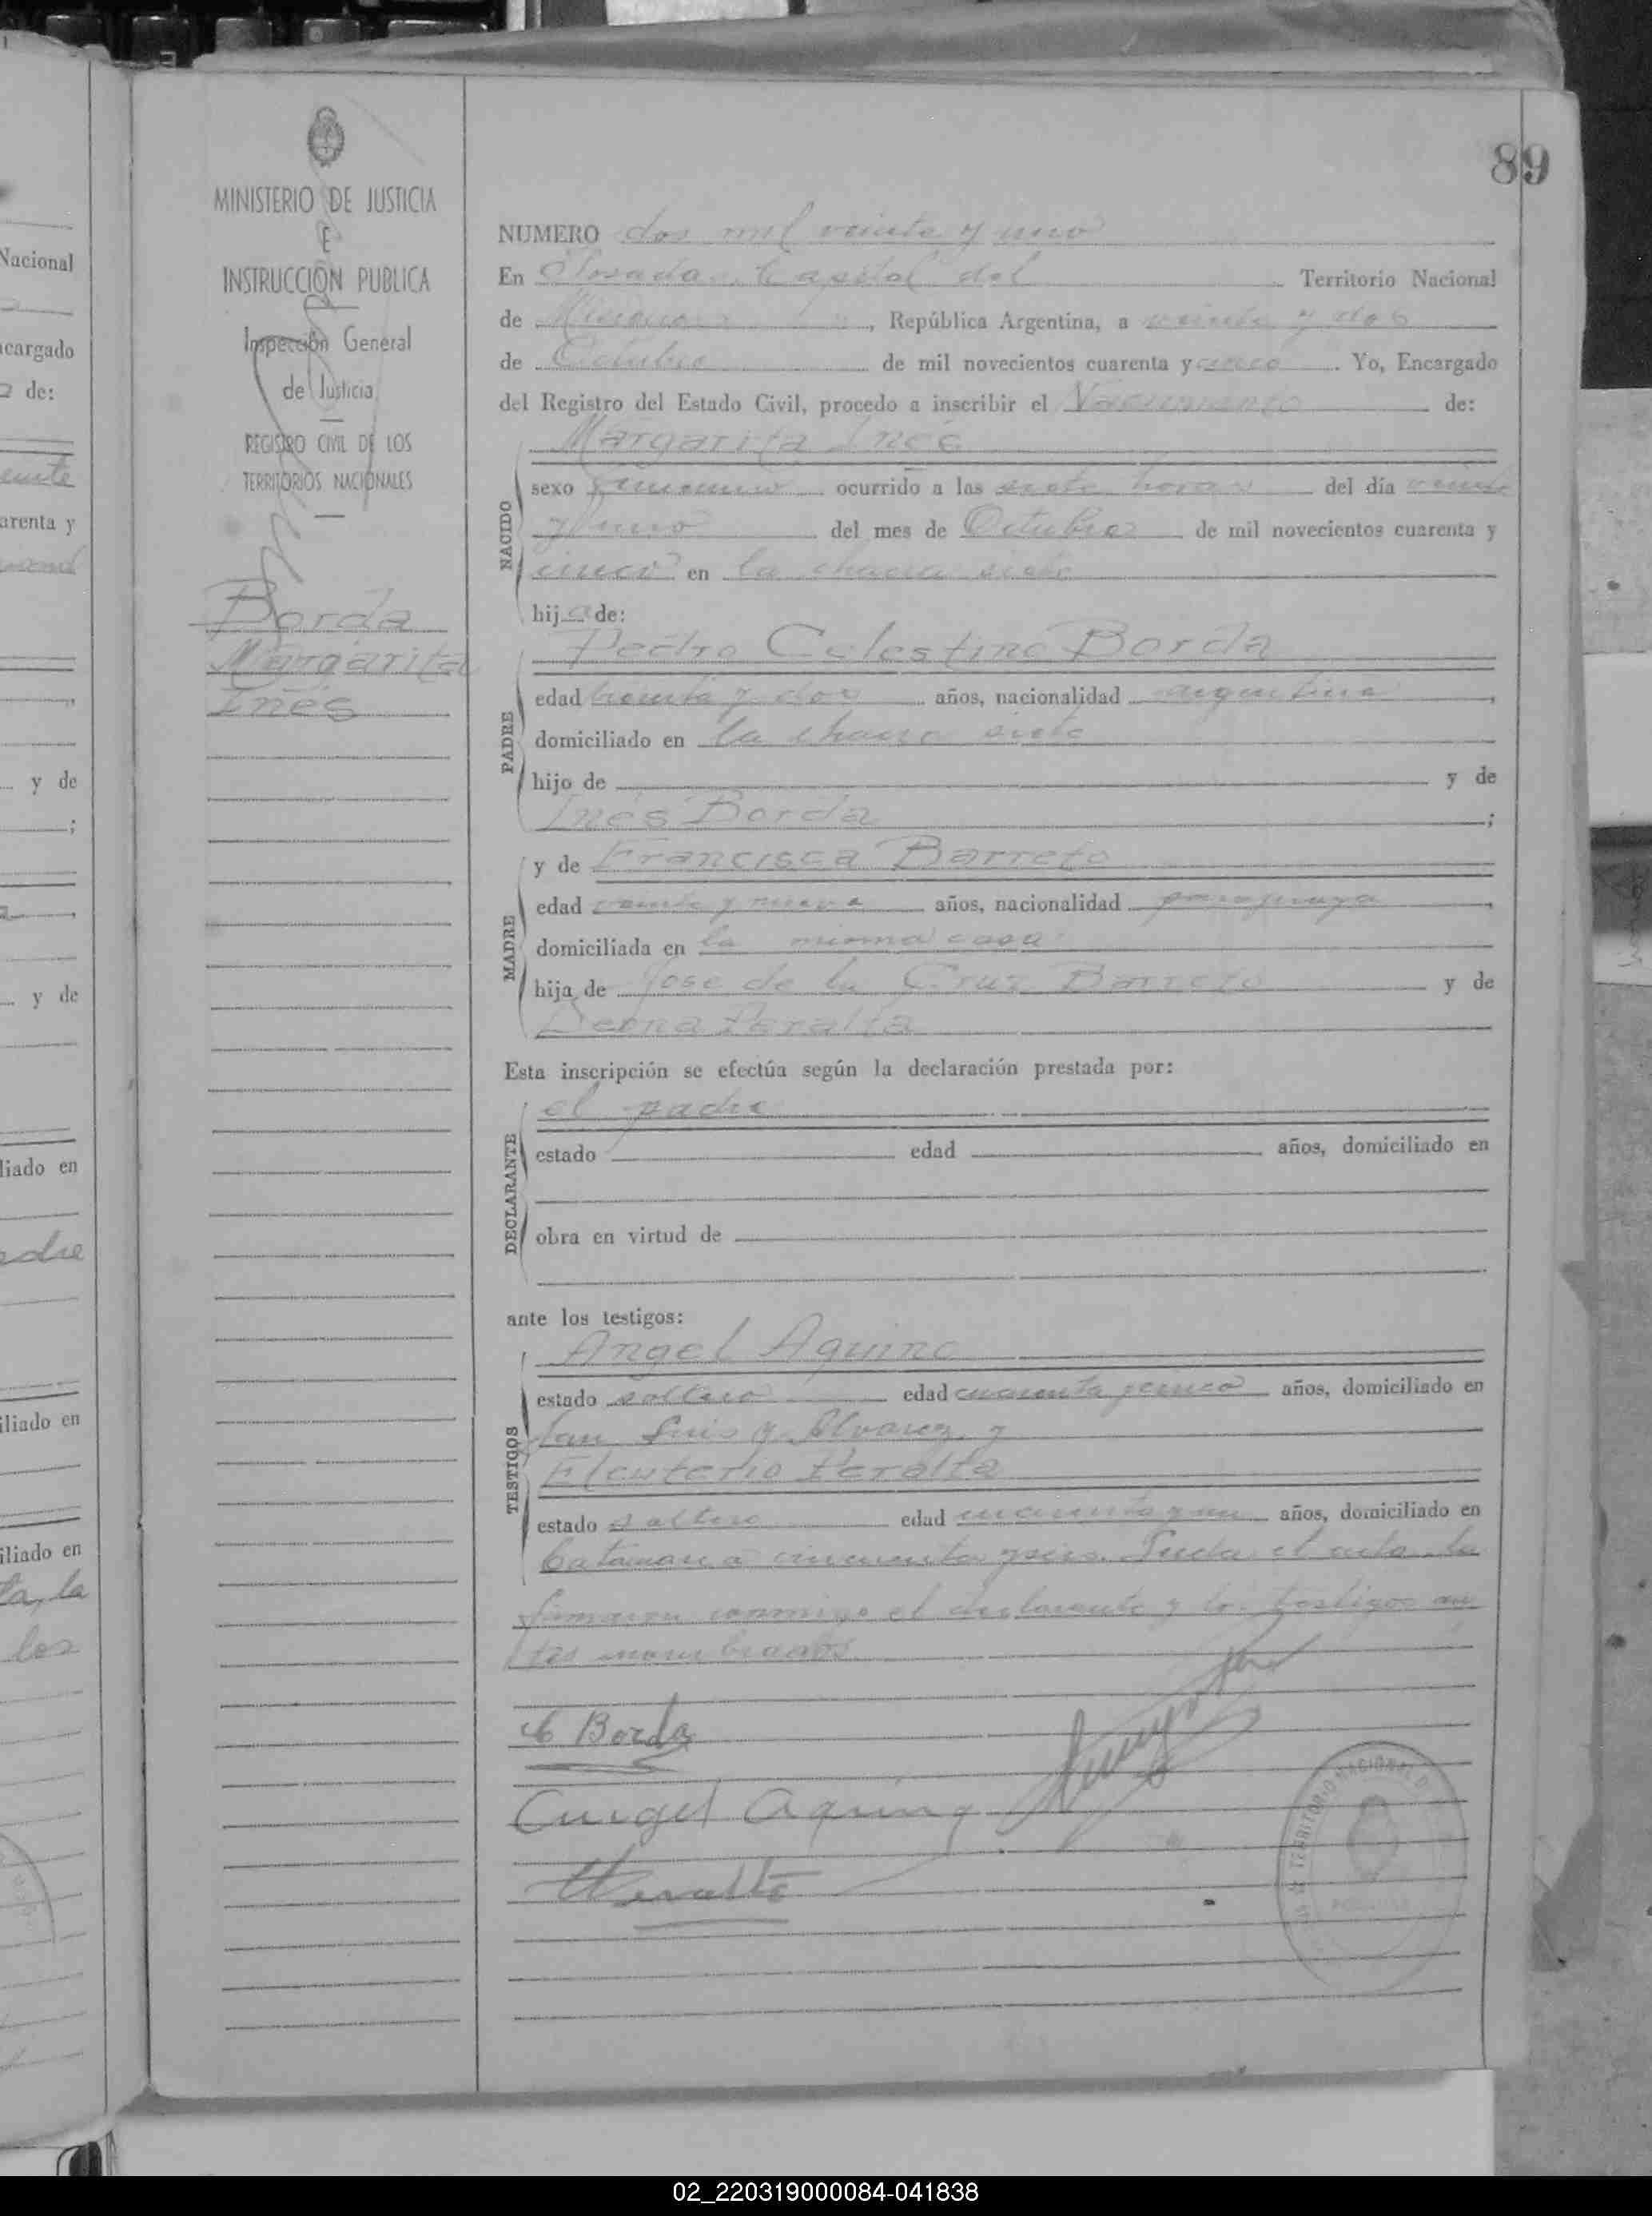 89
MINISTERIO DE JUSTICIA
E
INSTRUCCIÓN PUBLICA
Inspección General
de Justicia
REGISTRO CIVIL DE LOS
TERRITORIOS NACIONALES
Borda
Margarita
Inés
NUMERO dos mil veinte y uno
En Posadas, Capital del Territorio Nacional
de Misiones, República Argentina, a veinte y dos
de Octubre de mil novecientos cuarenta y cinco. Yo, Encargado
del Registro del Estado Civil, procedo a inscribir el Nacimiento de:
Margarita Inés
NACIDO
sexo femenino ocurrido a las siete horas del día veinte
y uno del mes de Octubre de mil novecientos cuarenta y
cinco en la chacra siete
hija de:
Pedro Celestino Borda
PADRE
edad treinta y dos años, nacionalidad argentina,
domiciliado en la chacra siete
hijo de y de
Inés Borda;
y de Francisca Barreto
MADRE
edad veinte y nueve años, nacionalidad paraguaya,
domiciliada en la misma casa
hija de José de la Cruz Barreto y de
Leona Peralta
Esta inscripción se efectúa según la declaración prestada por:
el padre
DECLARANTE
estado edad años, domiciliado en
obra en virtud de
ante los testigos:
Angel Aquino
TESTIGOS
estado soltero edad cuarenta y cinco años, domiciliado en
San Luis y Alvarez, y
Eleuterio Peralta
estado soltero edad cincuenta y un años, domiciliado en
Catamarca cincuenta y seis. Leída el acta, la
firmaron conmigo el declarante y los testigos an
tes nombrados.
C Borda
Angel Aquino
EPeralta
TERRITORIO NACIONAL D
Nacional
ncargado
de:
arenta y
y de
;
y de
liado en
adre
iliado en
iliado en
ta, la
los
02_220319000084-041838